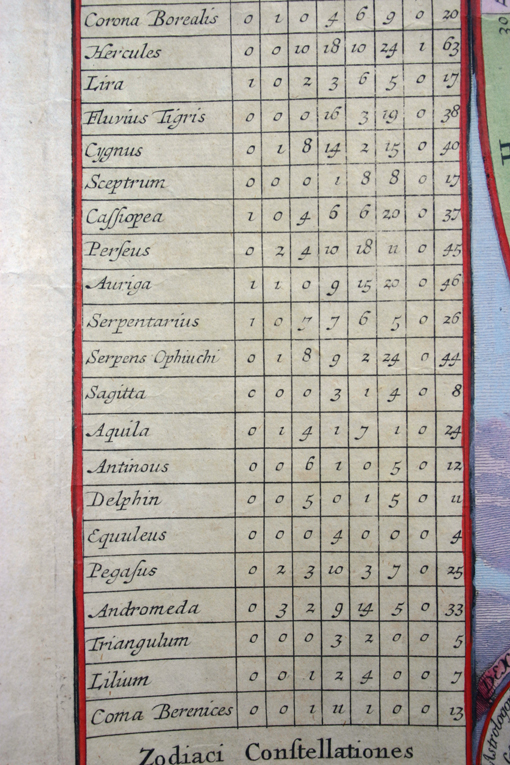 Corona Borealis 0 1 0 4 6 9 0 20
Hercules 0 0 10 18 10 24 1 63
Lira 1 0 2 3 6 5 0 17
Fluvius Tigris 0 0 0 16 3 19 0 38
Cygnus 0 1 8 14 2 15 0 40
Sceptrum 0 0 0 1 8 8 0 17
Caſſiopea 1 0 4 6 6 20 0 37
Perſeus 0 2 4 10 18 11 0 45
Auriga 1 1 0 9 15 20 0 46
Serpentarius 1 0 7 7 6 5 0 26
Serpens Ophiuchi 0 1 8 9 2 24 0 44
Sagitta 0 0 0 3 1 4 0 8
Aquila 0 1 4 1 7 1 0 24
Antinous 0 0 6 1 0 5 0 12
Delphin 0 0 5 0 1 5 0 11
Equuleus 0 0 0 4 0 0 0 4
Pegaſus 0 2 3 10 3 7 0 25
Andromeda 0 3 2 9 14 5 0 33
Triangulum 0 0 0 3 2 0 0 5
Lilium 0 0 1 2 4 0 0 7
Coma Berenices 0 0 1 11 1 0 0 13
Zodiaci Conſtellationes
30